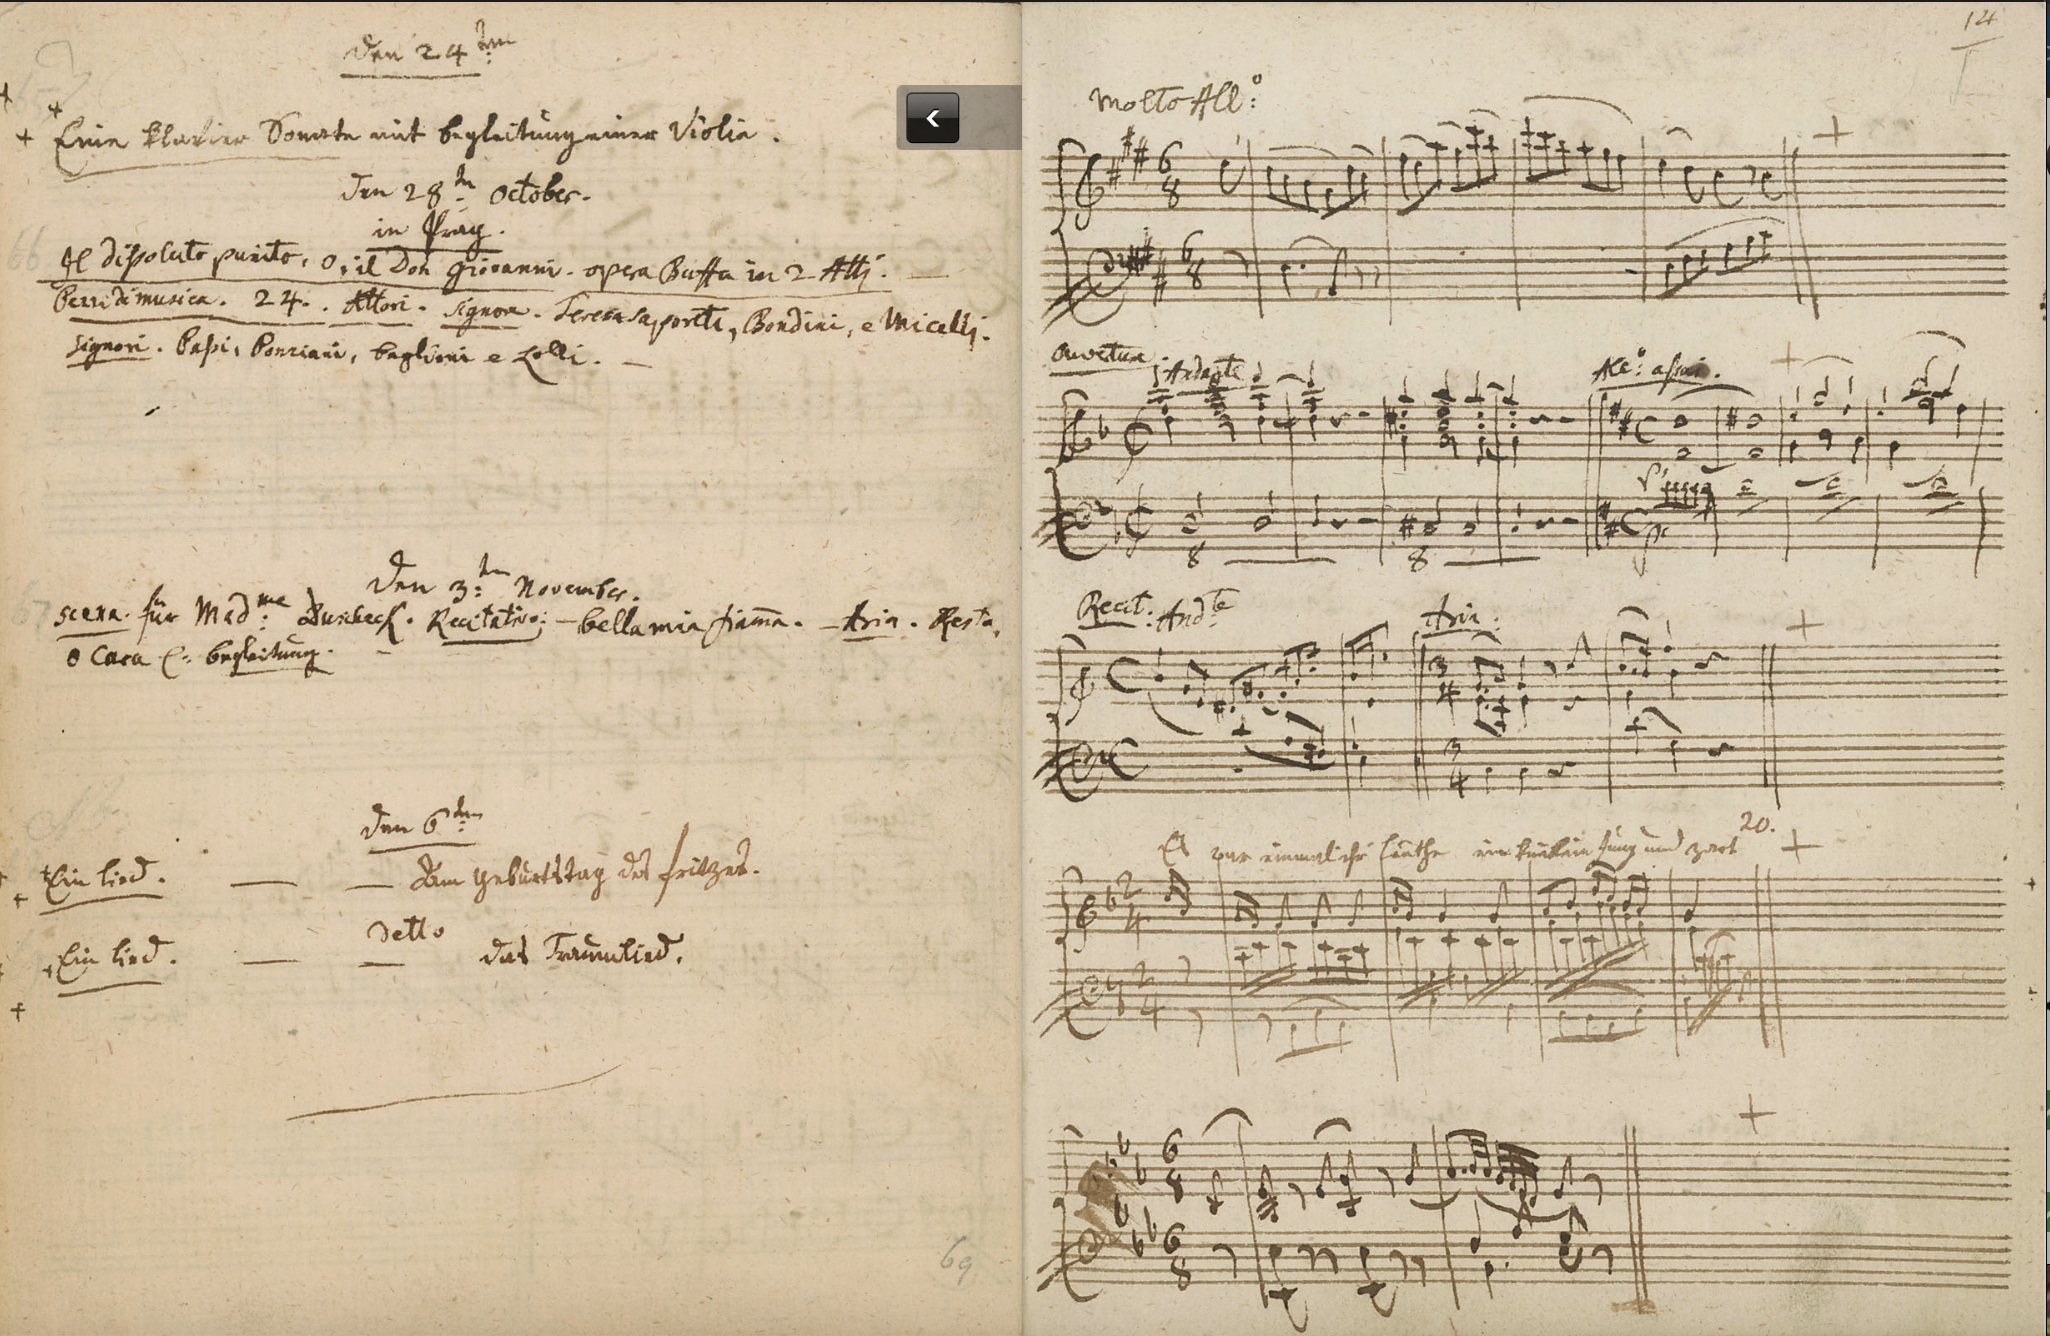 den 24:ten
Eine klavier Sonate mit begleitung einer Violin.
den 28:tn october.
in Prag.
Il dissoluto punito, o, il Don Giovanni. opera Buffa in 2 Atti.
Pezzi di musica. 24. Attori. Signore. Teresa Saporiti, Bondini, e Micelli.
Signori. Passi, Ponziani, baglioni e Lolli.
den 3:tn November.
Scena. für Mad:me Duscheck. Recitativo: – bella mia fiamma. – Aria. Resta,
o Cara &: begleitung.
den 6:ten
Ein lied. — — Am Geburtstag des fritzes.
detto
Ein lied. — — das Traumlied.
69
14
Molto All:o
6 8
6 8
Ouvertura. Andante
All:o assai.
8
8
Recit: And:te
Aria:
3 4
3 4
Es war einmal ihr Leuthe ein knäblein jung und zart 20.
2 4
2 4
6 8
6 8